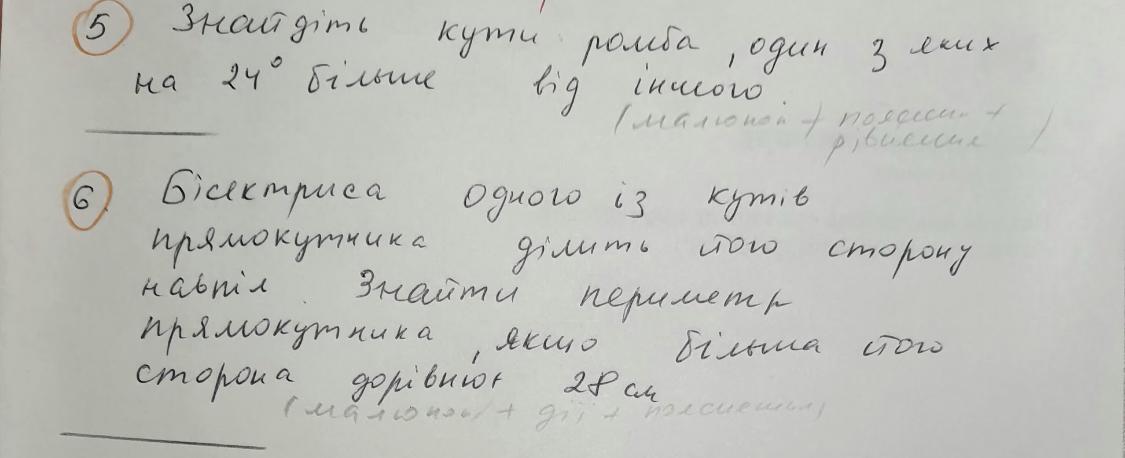 5 Знайдіть кути ромба, один з яких
на 24° більше від іншого.
(малюнок + пояснен +
рівняння)
6. Бісектриса одного із кутів
прямокутника ділить його сторону
навпіл. Знайти периметр
прямокутника, якщо більша його
сторона дорівнює 28 см
(малюнок + дії + пояснення)